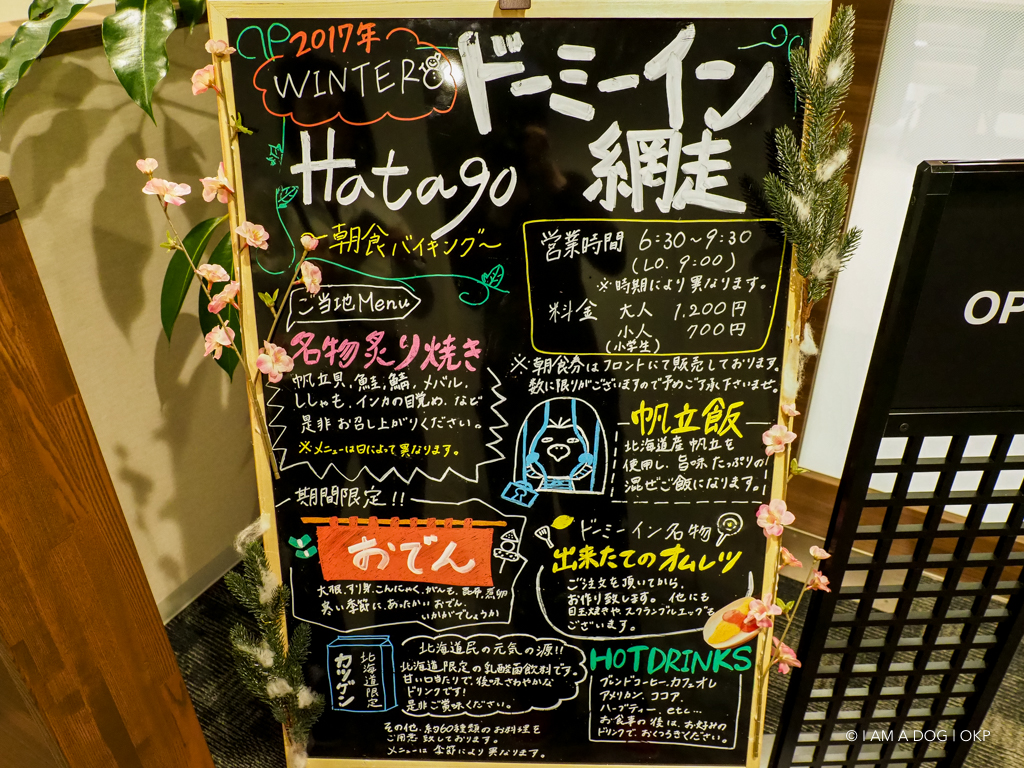 2017年
WINTER
ドーミーイン
網走
Hatago
~朝食バイキング~
営業時間 6:30~9:30
(LO. 9:00)
※時期により異なります。
料金 大人 1,200円
小人 700円
(小学生)
※朝食券はフロントにて販売しております。
数に限りがございますので予めご了承下さいませ。
ご当地Menu
名物炙り焼き
帆立貝、鮭、鯖、メバル、
ししゃも、インカの目覚め、など
是非お召し上がりください。
※メニューは日によって異なります。
帆立飯
北海道産帆立を
使用し、旨味たっぷりの
混ぜご飯になります。
期間限定!!
おでん
大根、すり身、こんにゃく、がんも、昆布、煮卵
寒い季節に、あったかいおでん、
いかがでしょうか
ドーミーイン名物
出来たてのオムレツ
ご注文を頂いてから、
お作り致します。 他にも
目玉焼きやスクランブルエッグも
ございます。
北海道限定
カツゲン
北海道民の元気の源!!
北海道限定の乳酸菌飲料です。
甘い口当たりで、後味さわやかな
ドリンクです!
是非ご賞味ください。
HOTDRINKS
ブレンドコーヒー、カフェオレ
アメリカン、ココア、
ハーブティー、etc...
お食事の後は、お好みの
ドリンクで、おくつろぎください。
その他、約60種類のお料理を
ご用意致しております。
メニューは季節により異なります。
OP
© I AM A DOG | OKP